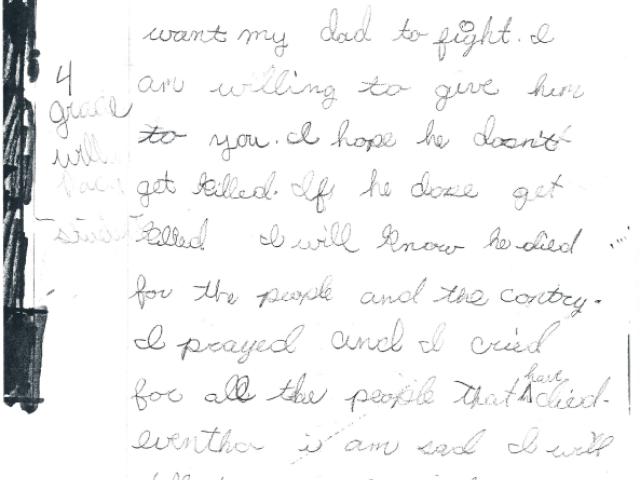 want my dad to fight. I
am willing to give him
to you. I hope he doosn't
get killed. Ife he doze get
killed I will know he died
for the people and the contry.
I prayed and I cried
for all the people that have died.
eventho i am sad I will
4
grade
will